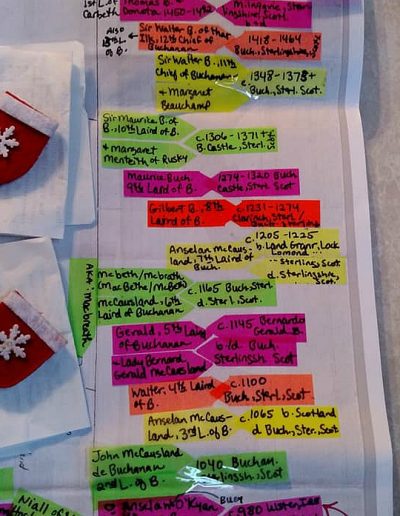 1st L. of
Carbeth
Thomas B.
Donota 1450-1492
Scotl.
ALSO
Sir Walter B. of that
Ilk, 12th Chief of
Buchanan
1418-1464
Buch., Sterlingshire,
Sir Walter B., 11th
Chief of Buchanan
+ Margaret
Beauchamp
1348-1378+
Buch., Sterl. Scot.
Sir Maurice B. of
B., 10th Laird of B.
+ margaret
Menteith of Rusky
c.1306-1371+
B. Castle, Sterl.
Maurice Buch.
9th Laird of B.
1274-1320 Buch
Castle, Sterl. Scot
Gilbert B., 8th
Laird of B.
c.1231-1274
Clarinch, Sterl/
Anselan McCaus-
land, 7th Laird of
Buch.
c.1205-1225
b. Land Granr, Lock
Lomond
Sterling, Scot
d. Sterlingshire,
AKA: Macbreath
McBeth/mcbreth
(MacBeth/McBeth
mcCausland, 6th
Laird of Buchanan
c.1165 Buch, Sterl
d. Sterl, Scot.
Gerald, 5th Laird
of Buchanan
~Lady Bernard
Gerald McCausland
c.1145 Bernardo
Gerald B.
b/d Buch.
Sterlingsh Scot
Walter, 4th Laird
of B.
c.1100
Buch, Sterl, Scot.
Anselan McCaus-
land, 3rd L. of B.
c.1065 b. Scotland
d Buch, Ster, Scot
John McCausland
de Buchanan
2nd L. of B.
1040 Buchan.
Sterlingsh, Scot
Niall of
Anselan O'Kyan
c980 Ulster,